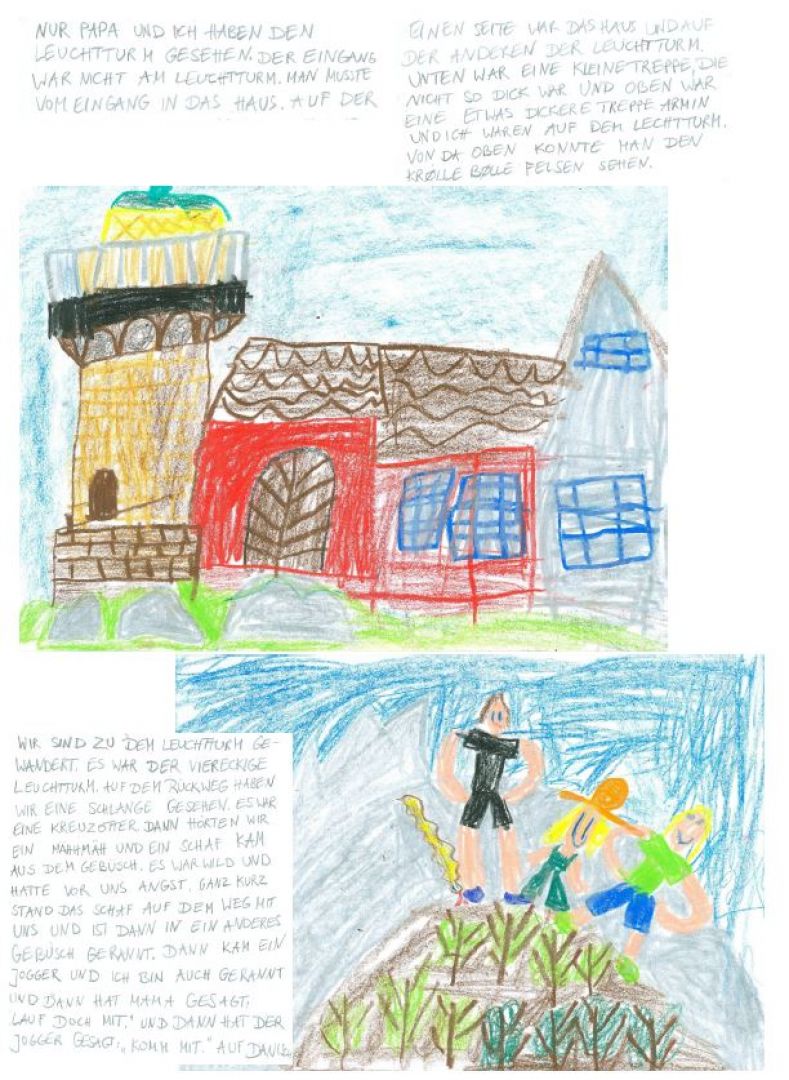 NUR PAPA UND ICH HABEN DEN
LEUCHTTURM GESEHEN. DER EINGANG
WAR NICHT AM LEUCHTTURM. MAN MUSSTE
VOM EINGANG IN DAS HAUS. AUF DER
EINEN SEITE WAR DAS HAUS UND AUF
DER ANDEREN DER LEUCHTTURM.
UNTEN WAR EINE KLEINE TREPPE, DIE
NICHT SO DICK WAR UND OBEN WAR
EINE ETWAS DICKERE TREPPE ARMIN
UND ICH WAREN AUF DEM LECHTTURM.
VON DA OBEN KONNTE MAN DEN
KRØLLE BØLLE FELSEN SEHEN.
WIR SIND ZU DEM LEUCHTTURM GE-
WANDERT. ES WAR DER VIERECKIGE
LEUCHTTURM. AUF DEM RÜCKWEG HABEN
WIR EINE SCHLANGE GESEHEN. ES WAR
EINE KREUZOTTER. DANN HÖRTEN WIR
EIN MÄHHMÄH UND EIN SCHAF KAM
AUS DEM GEBÜSCH. ES WAR WILD UND
HATTE VOR UNS ANGST. GANZ KURZ
STAND DAS SCHAF AUF DEM WEG MIT
UNS UND IST DANN IN EIN ANDERES
GEBÜSCH GERANNT. DANN KAM EIN
JOGGER UND ICH BIN AUCH GERANNT
UND DANN HAT MAMA GESAGT:
LAUF DOCH MIT," UND DANN HAT DER
JOGGER GESAGT: „KOMM MIT." AUF DANC